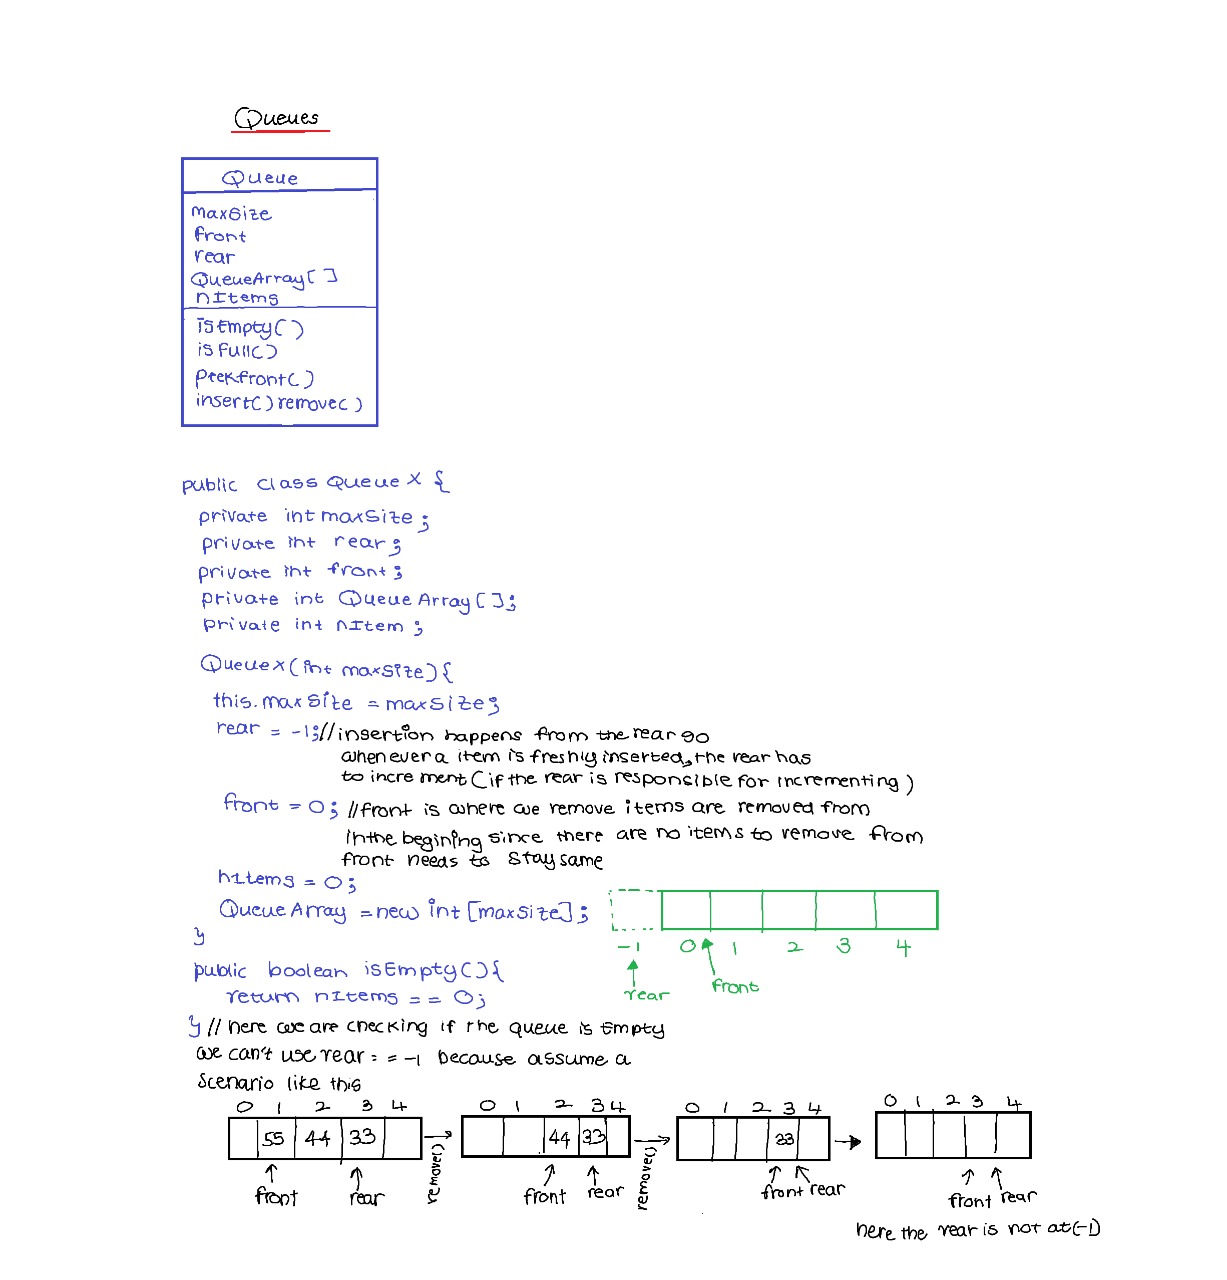 Queues
Queue
maxSize
front
rear
QueueArray[ ]
nItems
isEmpty()
isFull()
peekfront()
insert() remove()
public class QueueX {
private int maxSize;
private int rear;
private int front;
private int QueueArray[];
private int nItem;
QueueX(int maxSize){
this.maxSize = maxSize;
rear = -1; //insertion happens from the rear so
whenever a item is freshly inserted, the rear has
to increment (if the rear is responsible for incrementing)
front = 0; //front is where we remove items are removed from
inthe begining since there are no items to remove from
front needs to stay same
nItems = 0;
QueueArray = new int [maxSize];
}
-1 0 1 2 3 4
rear front
public boolean isEmpty(){
return nItems == 0;
} // here we are checking if the queue is Empty
we can't use rear == -1 because assume a
scenario like this
0 1 2 3 4
55 44 33
front rear
remove()
0 1 2 3 4
44 33
front rear
remove()
0 1 2 3 4
33
front rear
0 1 2 3 4
front rear
here the rear is not at (-1)